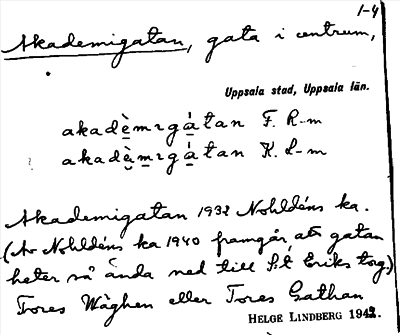 1-4
Akademigatan, gata i centrum,
Uppsala stad, Uppsala län.
akadè̱mɪgá̱tan F. R-m
akadè̱m̱ɪgá̱tan K. L-m
Akademigatan 1932 Nohldéns ka.
(Av Nohldéns ka 1940 framgår, att gatan
heter så ända ned till S:t Eriks torg.)
Tores Wäghen eller Tores Gathan
HELGE LINDBERG 1942.